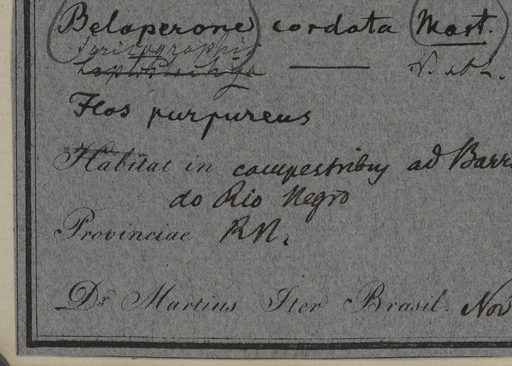 Beloperone cordata Mart.
Flos purpureus
Habitat in campestribus ad Barra
do Rio Negro
Provinciae RN.
Dr. Martius Iter Brasil. Nov